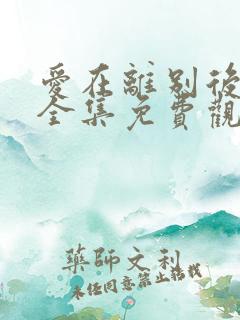 愛在離別後
全集免費觀
藥師文利
未經同意禁止搭載